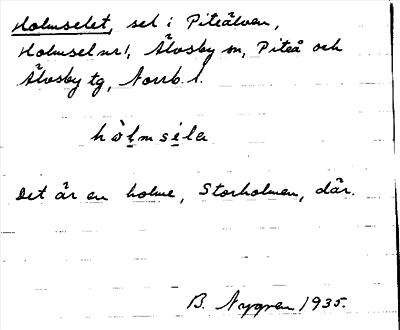 Holmselet, sel i Piteälven,
Holmsel nr 1, Älvsby sn, Piteå och
Älvsby tg, Norrb. l.
hòlmsela
Det är en holme, Storholmen, där.
B. Nygren 1935.